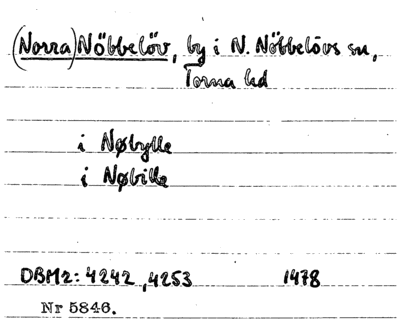 (Norra) Nöbbelöv, by i N. Nöbbelövs sn,
Torna hd
i Nøbylle
i Nøbille
DBM2: 4242, 4253 1478
Nr 5846.